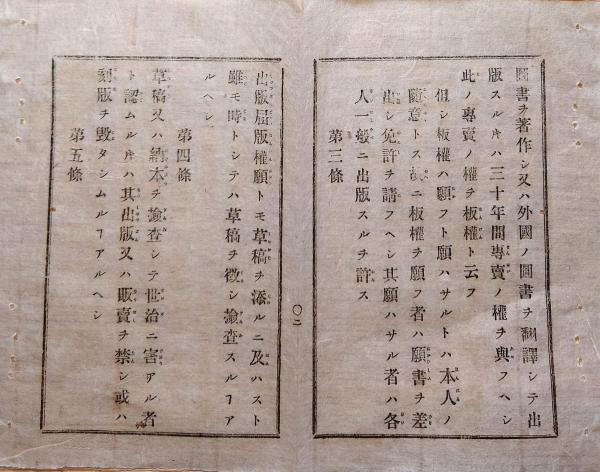 圖書ヲ著作シ又ハ外國ノ圖書ヲ翻譯シテ出
版スルヰハ三十年間專賣ノ權ヲ與フヘシ
此ノ專賣ノ權ヲ板權ト云フ
但シ板權ハ願フト願ハサルトハ本人ノ
隨意トス故ニ板權ヲ願フ者ハ願書ヲ差
出シ免許ヲ請フヘシ其願ハサル者ハ各
人一般ニ出版スルヲ許ス
第三條
〇二
出版屆版權願トモ草稿ヲ添ルニ及ハスト
雖モ時トシテハ草稿ヲ徴シ撿査スルヿア
ルヘシ
第四條
草稿又ハ納本ヲ撿査シテ世治ニ害アル者
ト認ムルヰハ其出版又ハ販賣ヲ禁シ或ハ
刻版ヲ毀タシムルヿアルヘシ
第五條